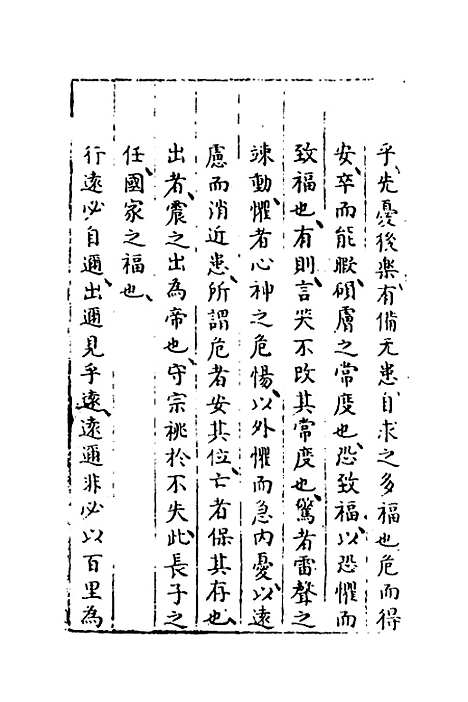 乎、先憂後樂、有備无患、自求之多福也、危而得
安、卒而能歌、碩膚之常度也、恐致福、以恐懼而
致福也、有則、言笑不改其常度也、驚者雷聲之
竦動、懼者心神之危惕、以外懼而急内憂、以遠
慮而消近患、所謂危者安其位、亡者保其存也、
出者、震之出為帝也、守宗祧於不失、此長子之
任、國家之福也、
行遠必自邇、出邇見乎遠、遠邇非必以百里為